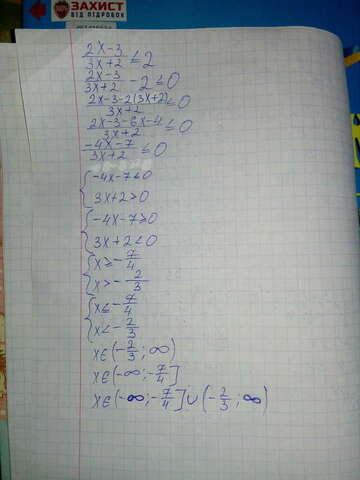 ЗАХИСТ
ВІД ПІДРОБОК
(2x-3)/(3x+2) ≤ 2
(2x-3)/(3x+2) - 2 ≤ 0
(2x-3-2(3x+2))/(3x+2) ≤ 0
(2x-3-6x-4)/(3x+2) ≤ 0
(-4x-7)/(3x+2) ≤ 0
{ -4x-7 ≤ 0
3x+2 > 0
{ -4x-7 ≥ 0
3x+2 < 0
{ x ≥ -7/4
x > -2/3
{ x ≤ -7/4
x < -2/3
x ∈ (-2/3; ∞)
x ∈ (-∞; -7/4]
x ∈ (-∞; -7/4] ∪ (-2/3; ∞)